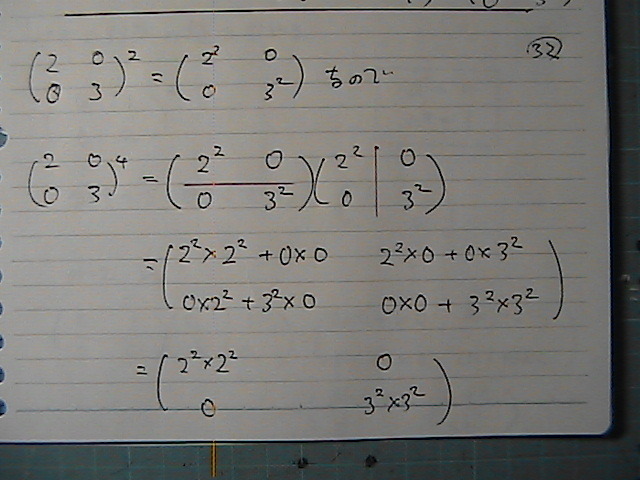 ㉜
(2 0 0 3)² = (2² 0 0 3²) なので
(2 0 0 3)⁴ = (2² 0 0 3²)(2² 0 0 3²)
= (2²×2²+0×0 2²×0+0×3²
0×2²+3²×0 0×0+3²×3²)
= (2²×2² 0
0 3²×3²)